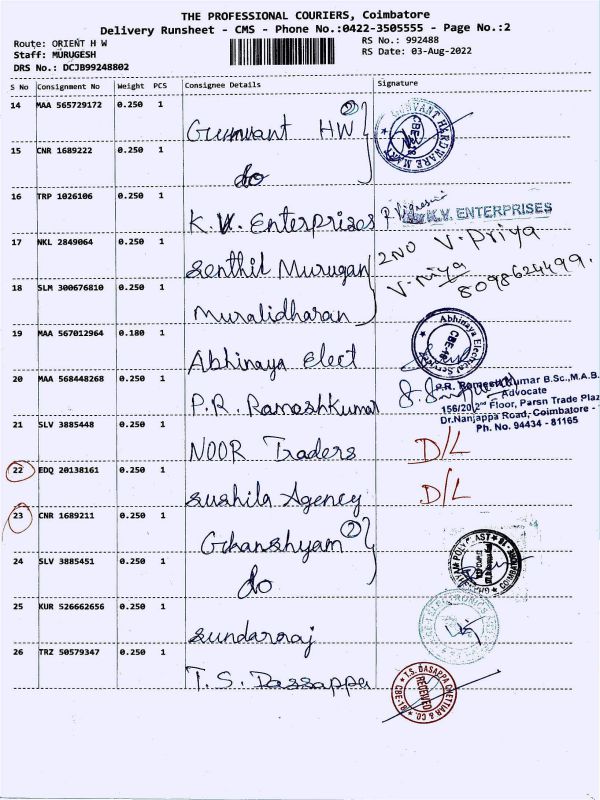 THE PROFESSIONAL COURIERS, Coimbatore
Delivery Runsheet - CMS - Phone No.:0422-3505555 - Page No.:2
Route: ORIENT H W
RS No.: 992488
Staff: MURUGESH
RS Date: 03-Aug-2022
DRS No.: DCJB99248802
S No Consignment No Weight PCS Consignee Details Signature
14 MAA 565729172 0.250 1 Gunvant HW ②
HARDWARE MART
15 CNR 1689222 0.250 1 do
16 TRP 1026106 0.250 1 K.V. Enterprises
K.V. ENTERPRISES
17 NKL 2849064 0.250 1 Senthil Murugan
2NO V. Priya
18 SLM 300676810 0.250 1 Muralidharan
8098624499.
19 MAA 567012964 0.180 1 Abhinaya Elect
Abhinaya Electrical Service
CBE-18
20 MAA 568448268 0.250 1 P.R. Rameshkumar
P.R. Ramesh Kumar B.Sc.,M.A.B.
Advocate
156/20 2nd Floor, Parsn Trade Plaz
Dr.Nanjappa Road, Coimbatore -
Ph. No. 94434 - 81165
21 SLV 3885448 0.250 1 NOOR Traders D/L
22 EDQ 20138161 0.250 1 Sushila Agency D/L
23 CNR 1689211 0.250 1 Ghanshyam ②
24 SLV 3885451 0.250 1 do
25 KUR 526662656 0.250 1 Sundarraj
26 TRZ 50579347 0.250 1 T.S. Dassappa
T.S. DASAPPA CHETTIAR & CO.
RECEIVED
CBE-18